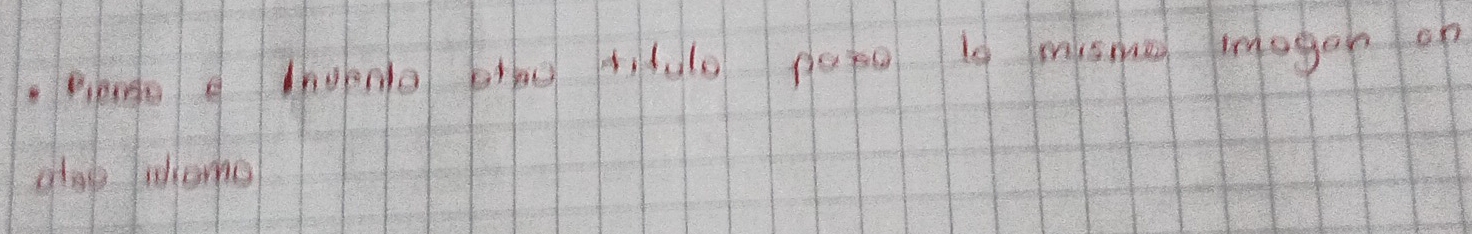 • Piense e Invento otro titulo para la misma imagen en
otro idioma